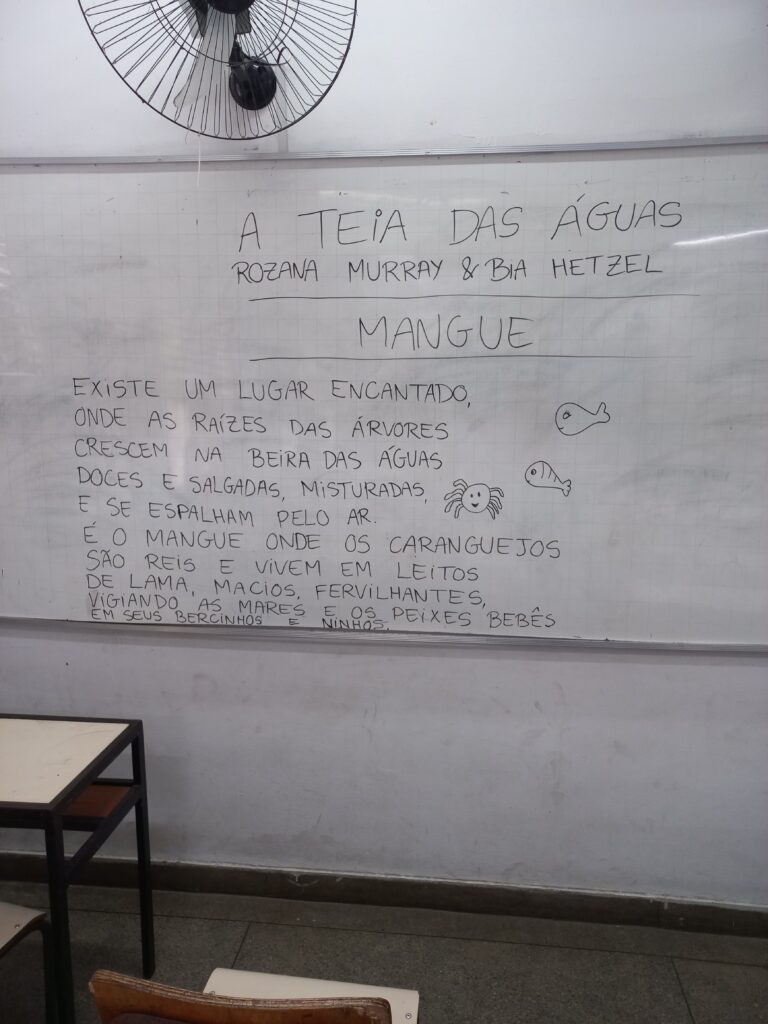 A TEIA DAS ÁGUAS
ROZANA MURRAY & BIA HETZEL
MANGUE
EXISTE UM LUGAR ENCANTADO,
ONDE AS RAÍZES DAS ÁRVORES
CRESCEM NA BEIRA DAS ÁGUAS
DOCES E SALGADAS, MISTURADAS,
E SE ESPALHAM PELO AR.
É O MANGUE ONDE OS CARANGUEJOS
SÃO REIS E VIVEM EM LEITOS
DE LAMA, MACIOS, FERVILHANTES,
VIGIANDO AS MARES E OS PEIXES BEBÊS
EM SEUS BERCINHOS E NINHOS.